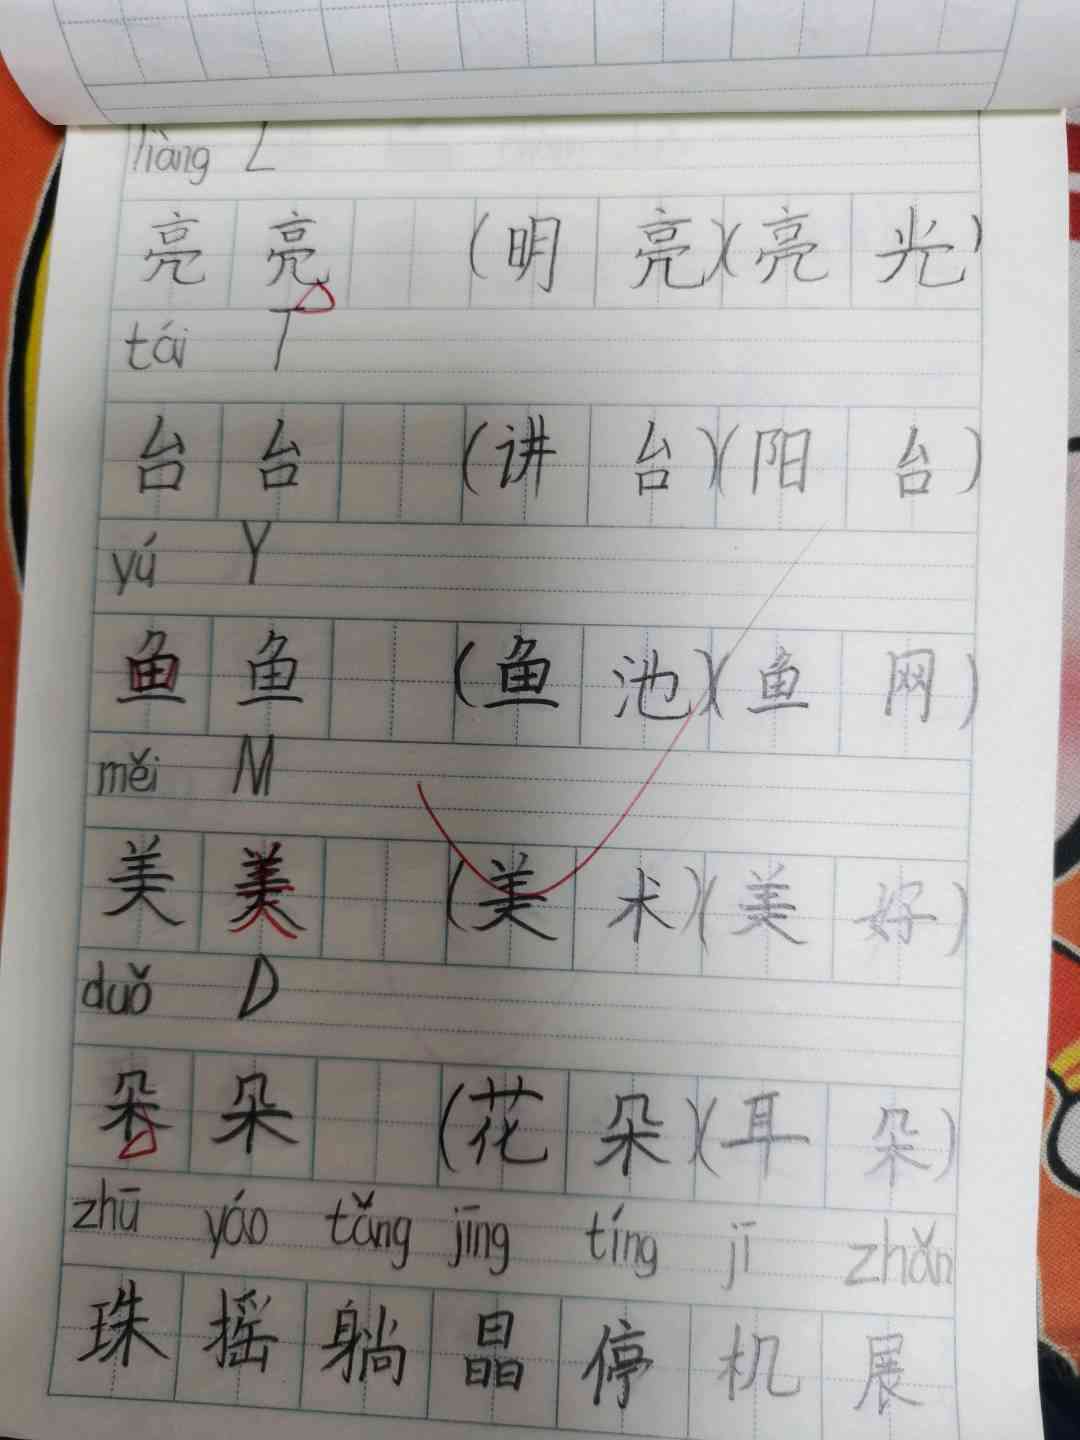 liàng L
亮 亮 (明 亮)(亮 光)
tái T
台 台 (讲 台)(阳 台)
yú Y
鱼 鱼 (鱼 池)(鱼 网)
měi M
美 美 (美 术)(美 好)
duǒ D
朵 朵 (花 朵)(耳 朵)
zhū yáo tǎng jīng tíng jī zhǎn
珠 摇 躺 晶 停 机 展